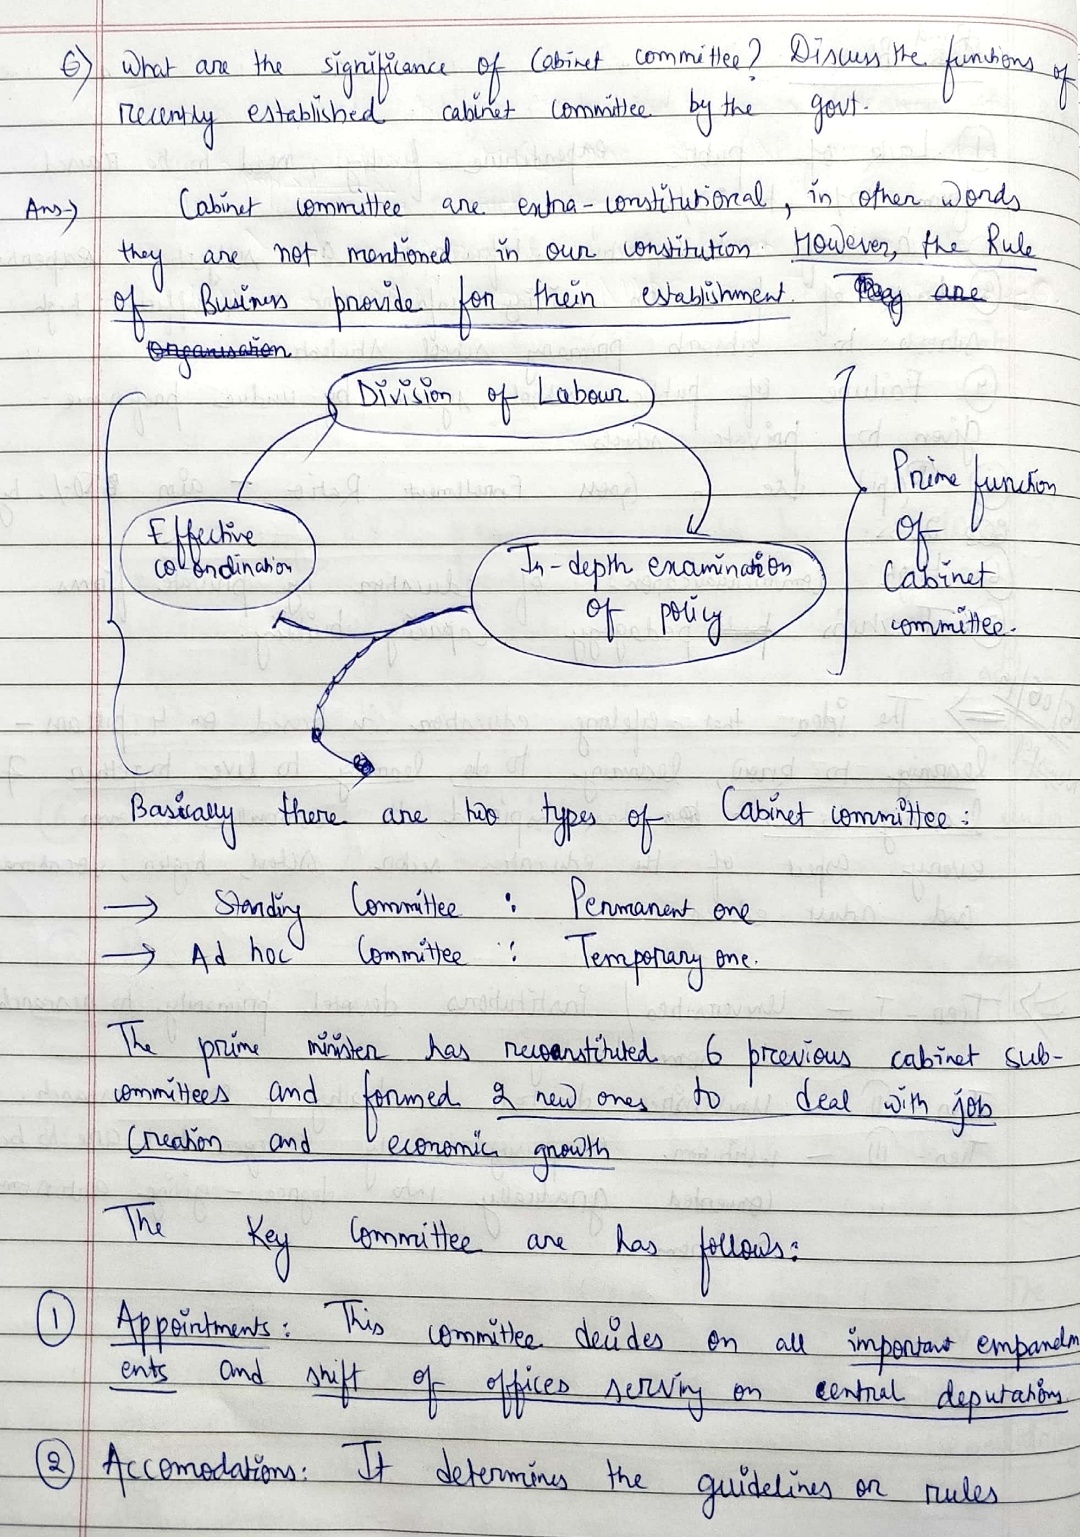 6) What are the significance of Cabinet committee? Discuss the functions of
recently established cabinet committee by the govt.
Ans→ Cabinet committee are extra-constitutional, in other words
they are not mentioned in our constitution. However, the Rule
of Business provide for their establishment. They are
organisation
Division of Labour
Effective
co-ordination
In-depth examination
of policy
Prime function
of
Cabinet
committee.
Basically there are two types of Cabinet committee:
→ Standing Committee : Permanent one
→ Ad hoc Committee : Temporary one.
The prime minister has reconstituted 6 previous cabinet sub-
committees and formed 2 new ones to deal with job
creation and economic growth
The Key Committee are has follows:
① Appointments: This committee decides on all important empanelm
ents and shift of offices serving on central deputations
② Accomodations: It determines the guidelines or rules